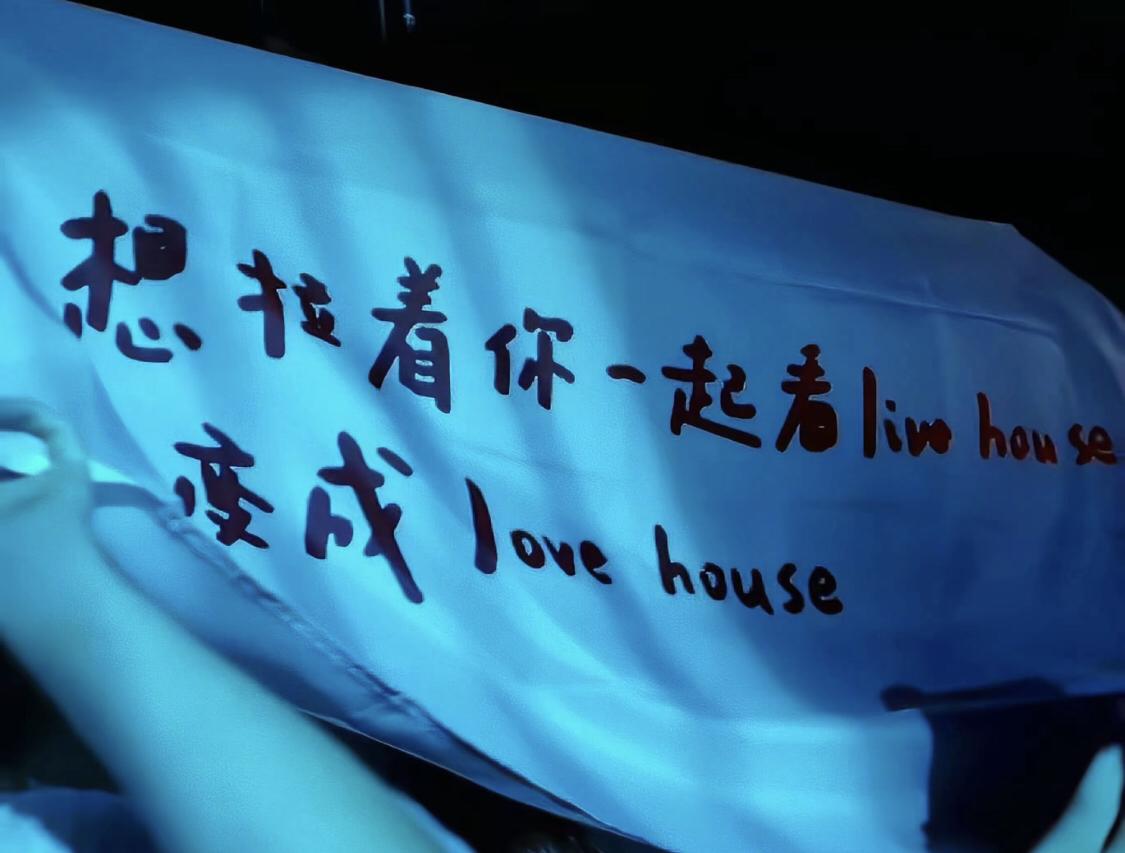 想拉着你一起看live house
变成love house